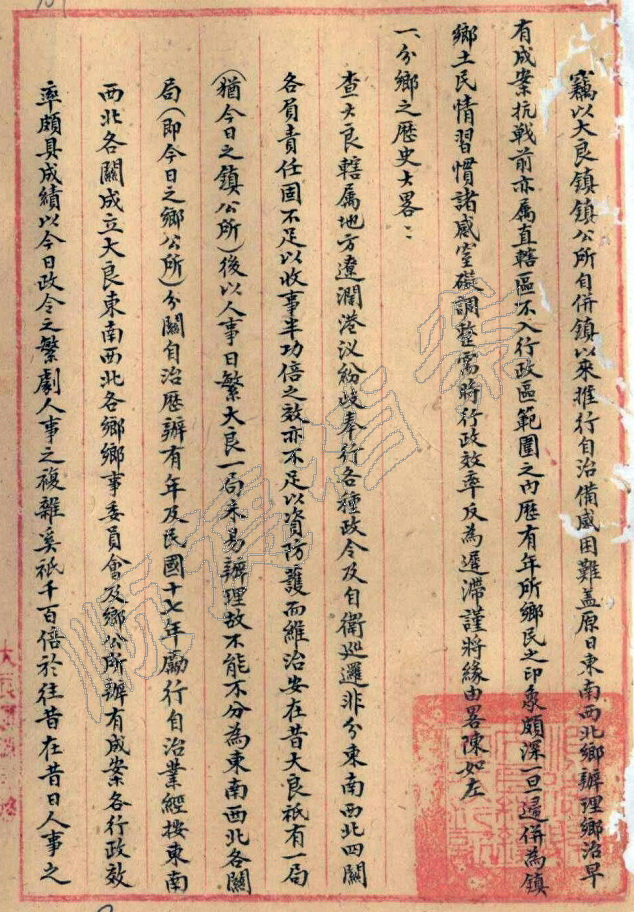 竊以大良鎮鎮公所自併鎮以來推行自治備感困難蓋原日東南西北鄉辦理鄉治早
有成案抗戰前亦属直轄區不入行政區範圍之內歷有年所鄉民之印象頗深一旦歸併為鎮
鄉土民情習慣諸感窒礙調整需時行政效率反為遲滯謹將緣由畧陳如左
一、分鄉之歷史大畧：
查大良轄属地方遼濶港汊紛歧奉行各種政令及自衛廵邏非分東南西北四關
各負責任固不足以收事半功倍之效亦不足以資防護而維治安在昔大良祇有一局
(猶今日之鎮公所)後以人事日繁大良一局未易辦理故不能不分為東南西北各關
局(即今日之鄉公所)分關自治歷辦有年及民國十七年勵行自治業經按東南
西北各關成立大良東南西北各鄉鄉事委員會及鄉公所辦有成案各行政效
率頗具成績以今日政令之繁劇人事之複雜奚祇千百倍於往昔在昔日人事之
順德檔案